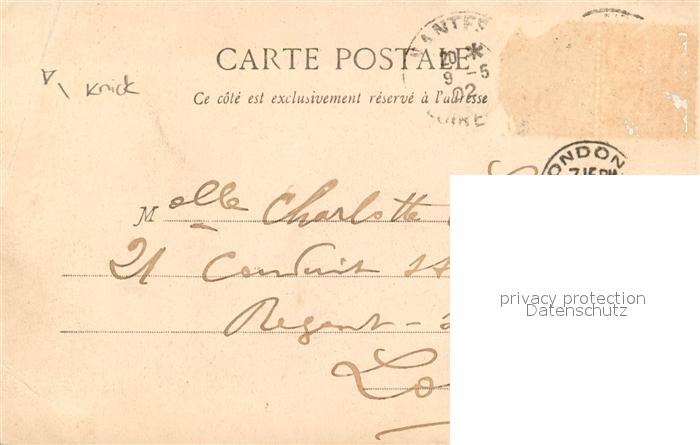 NANTES
CARTE POSTALE
20 *
9 -5
02
Knick
Ce côté est exclusivement réservé à l'adresse
LOIRE
LONDON
7.15 PM
Melle Charlotte
21 Conduit St
privacy protection
Datenschutz
Regent-
Lo